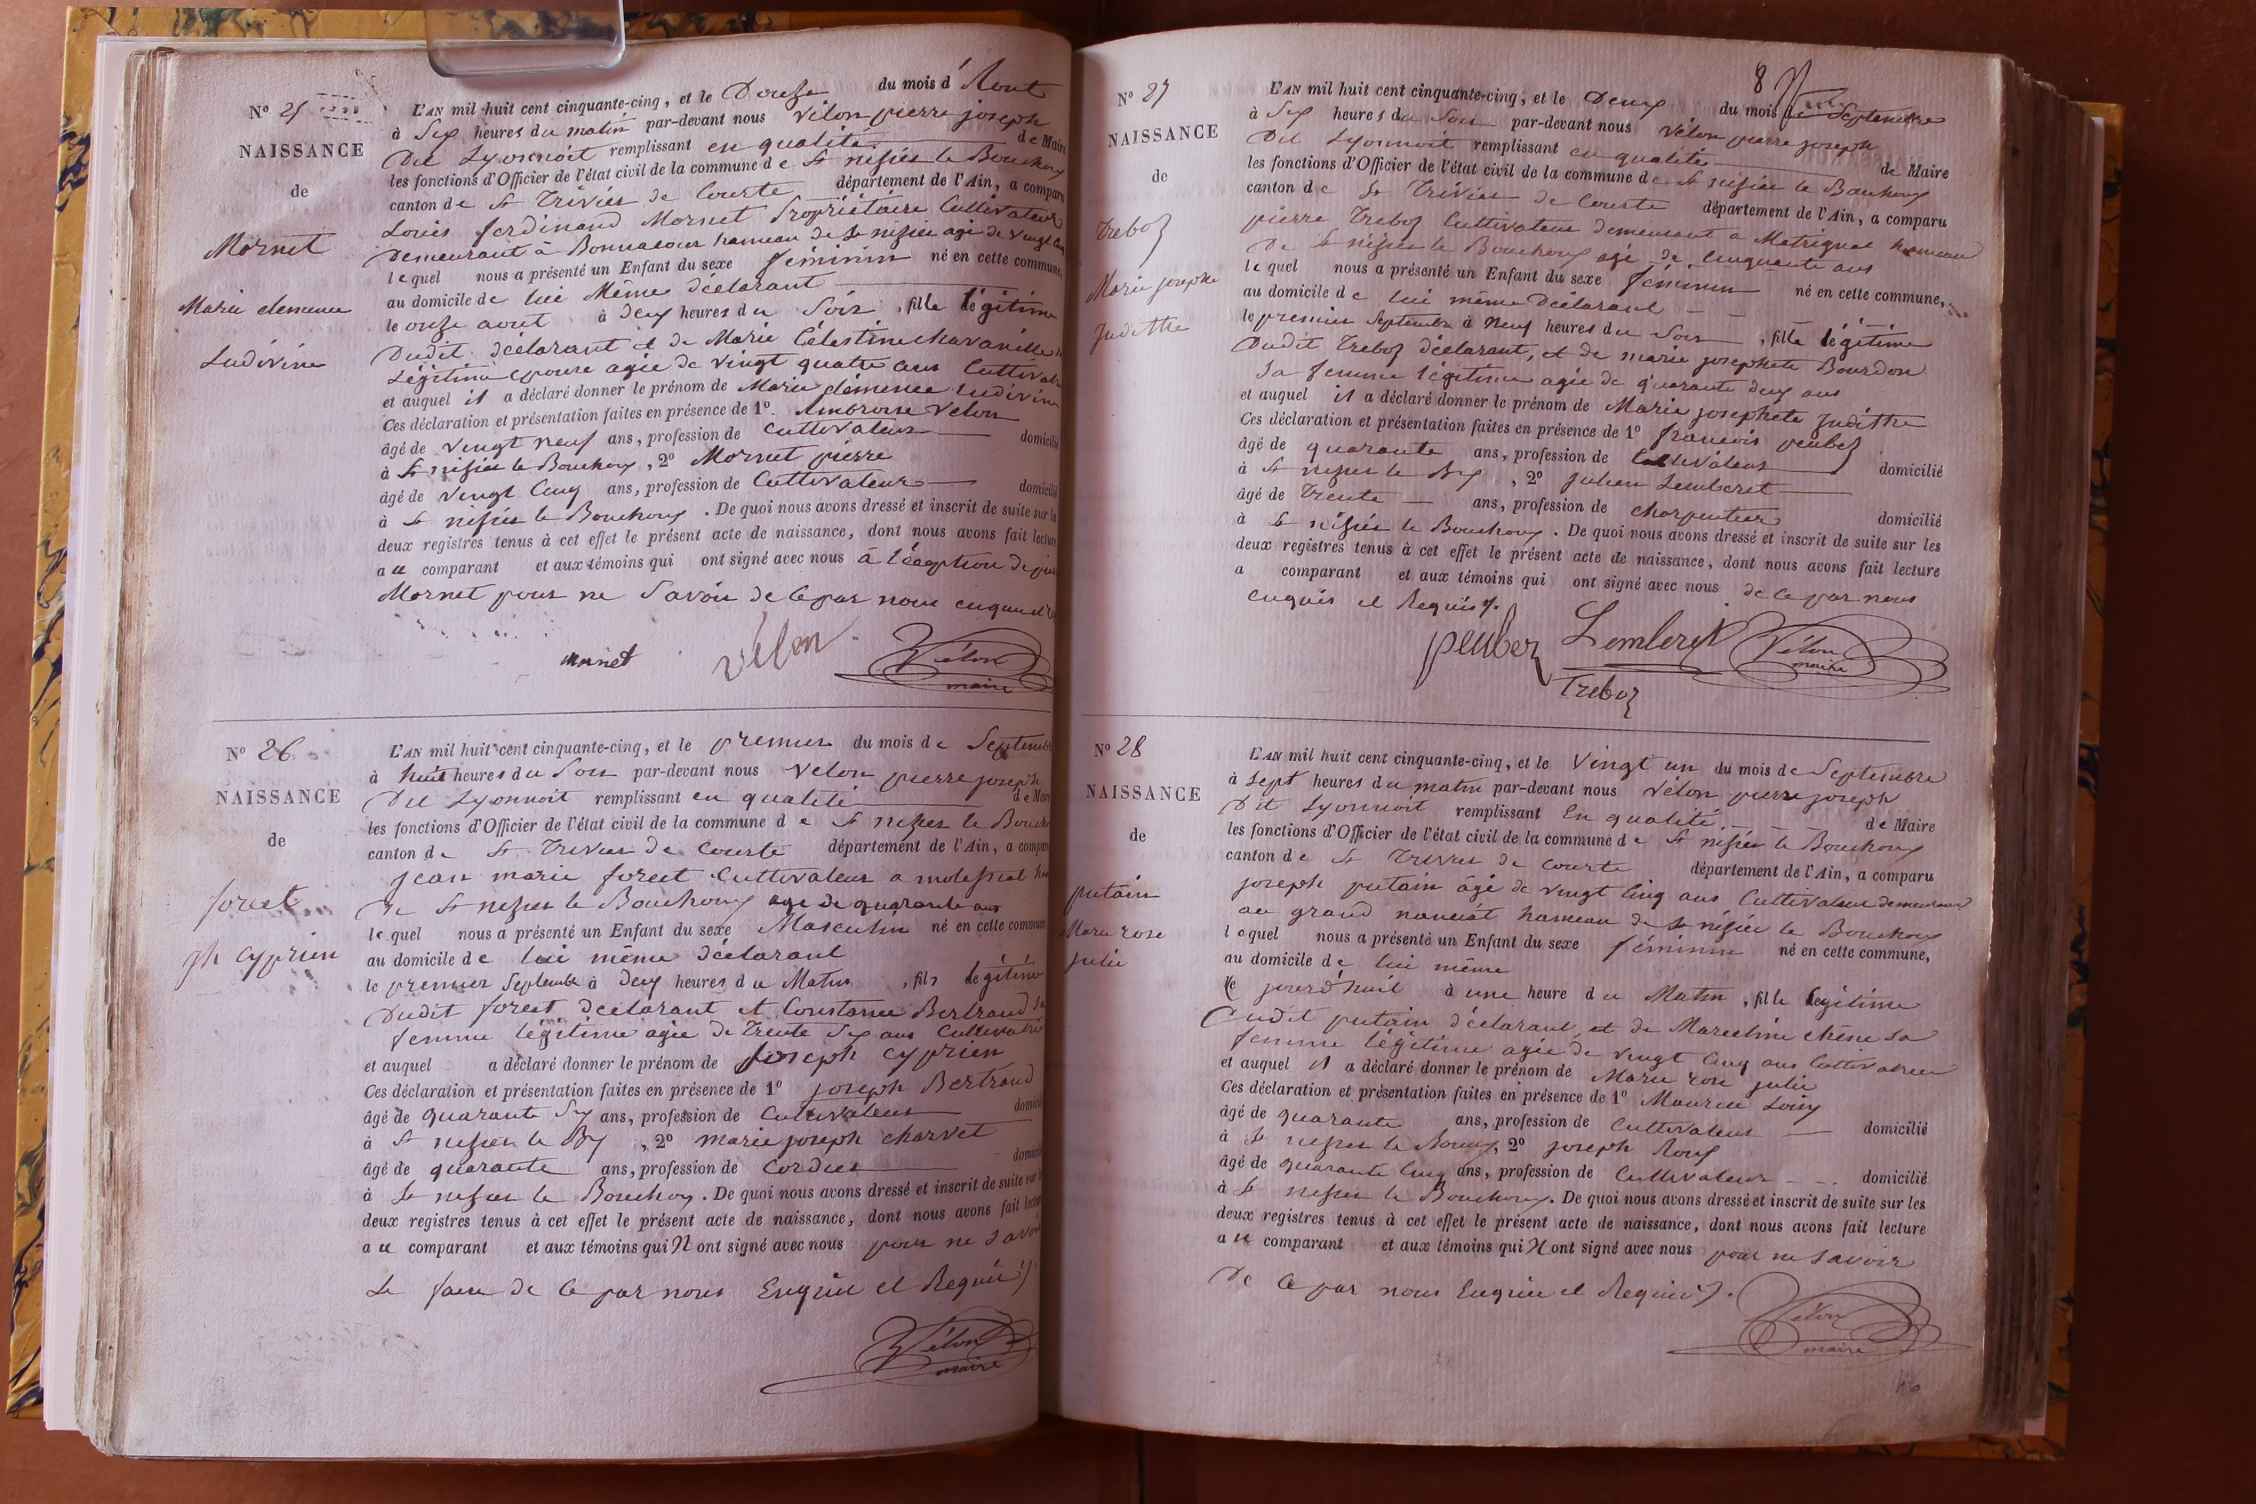 N° 25
NAISSANCE
de
Mornet
Marie clemence
Ludivine
L'AN mil huit cent cinquante-cinq, et le Douze du mois d'Aout
à Six heures du matin par-devant nous Vélon pierre joseph
Dit Lyonnoit remplissant en qualité de Maire
les fonctions d'Officier de l'état civil de la commune de St nisier le Bouchoux
canton de St Trivier de Courte département de l'Ain, a comparu
Louis ferdinand Mornet Propriétaire Cultivateur
Demeurant à Bonnacour hameau de St nisier agé de vingt Cinq
lequel nous a présenté un Enfant du sexe féminin né en cette commune,
au domicile de lui Même déclarant
le onze aout à deux heures du Soir, fille légitime
Dudit déclarant et de Marie Célestine
Légitime epouse agée de vingt quatre ans
et auquel il a déclaré donner le prénom de Marie clémence Ludivine
Ces déclaration et présentation faites en présence de 1° Ambroise Velon
âgé de vingt neuf ans, profession de Cultivateur domicilié
à St nisier le Bouchoux, 2° Mornet pierre
âgé de vingt Cinq ans, profession de Cultivateur domicilié
à St nisier le Bouchoux. De quoi nous avons dressé et inscrit de suite sur les
deux registres tenus à cet effet le présent acte de naissance, dont nous avons fait lecture
au comparant et aux témoins qui ont signé avec nous à l'éxception de
Mornet pour ne Savoir de Ce par nous enquis et
mornet vélon Vélon
maire
N° 26
NAISSANCE
de
forest
ph cyprien
L'AN mil huit cent cinquante-cinq, et le premier du mois de Septembre
à huit heures du Soir par-devant nous Velon pierre joseph
Dit Lyonnoit remplissant en qualité de Maire
les fonctions d'Officier de l'état civil de la commune de St nisier le Bouchoux
canton de St Trivier de Courte département de l'Ain, a comparu
jean marie forest Cultivateur a
de St nisier le Bouchoux agé de quarante ans
lequel nous a présenté un Enfant du sexe Masculin né en cette commune
au domicile de lui même déclarant
le premier Septembre à Deux heures du Matin, fils légitime
Dudit forest déclarant et Constance Bertrand Sa
femme légitime agée de Trente Six ans Cultivatrice
et auquel a déclaré donner le prénom de Joseph cyprien
Ces déclaration et présentation faites en présence de 1° joseph Bertrand
âgé de quarante Six ans, profession de Cultivateur domicilié
à St nisier le Bx, 2° marie joseph charvet
âgé de quarante ans, profession de Cordier domicilié
à St nisier le Bouchoux. De quoi nous avons dressé et inscrit de suite sur les
deux registres tenus à cet effet le présent acte de naissance, dont nous avons fait lecture
au comparant et aux témoins qui N'ont signé avec nous pour ne Savoir
Le faire de Ce par nous Enquis et Requis
Vélon
maire
8
N° 27
NAISSANCE
de
Treboz
Marie josephe
Judithe
L'AN mil huit cent cinquante-cinq, et le Deux du mois de Septembre
à Six heures du Soir par-devant nous Vélon pierre joseph
Dit Lyonnoit remplissant en qualité de Maire
les fonctions d'Officier de l'état civil de la commune de St nisier le Bouchoux
canton de St Trivier de Courte département de l'Ain, a comparu
pierre Treboz Cultivateur demeurant a Matrignat hameau
De St nisier le Bouchoux agé de Cinquante ans
lequel nous a présenté un Enfant du sexe féminin né en cette commune,
au domicile de lui même Déclarant
le premier Septembre à Neuf heures du Soir, fille légitime
Dudit Treboz déclarant, et de marie josephete Bourdon
Sa femme légitime agée de quarante deux ans
et auquel il a déclaré donner le prénom de Marie josephete Judithe
Ces déclaration et présentation faites en présence de 1° francois peubez
âgé de quarante ans, profession de Cultivateur domicilié
à St nisier le Bx, 2° Julien Lemberet
âgé de Trente ans, profession de charpentier domicilié
à St nisier le Bouchoux. De quoi nous avons dressé et inscrit de suite sur les
deux registres tenus à cet effet le présent acte de naissance, dont nous avons fait lecture
a comparant et aux témoins qui ont signé avec nous de Ce par nous
enquis et Requis
peubez Lemberet Vélon
maire
Treboz
N° 28
NAISSANCE
de
putain
Marie rose
julie
L'AN mil huit cent cinquante-cinq, et le Vingt un du mois de Septembre
à Sept heures du matin par-devant nous Vélon pierre joseph
Dit Lyonnoit remplissant En qualité de Maire
les fonctions d'Officier de l'état civil de la commune de St nisier le Bouchoux
canton de St Trivier de Courte département de l'Ain, a comparu
joseph putain âgé de vingt Cinq ans Cultivateur demeurant
au grand hameau de St nisier le Bouchoux
lequel nous a présenté un Enfant du sexe féminin né en cette commune,
au domicile de lui même
le jourd'huit à une heure du Matin, fille légitime
Dudit putain déclarant, et de Marceline chêne Sa
femme légitime agée de vingt Cinq ans Cultivatrice
et auquel il a déclaré donner le prénom de Marie rose julie
Ces déclaration et présentation faites en présence de 1° Maurice
âgé de quarante ans, profession de Cultivateur domicilié
à St nisier le Boux, 2° joseph Roux
âgé de quarante Cinq ans, profession de Cultivateur domicilié
à St nisier le Bouchoux. De quoi nous avons dressé et inscrit de suite sur les
deux registres tenus à cet effet le présent acte de naissance, dont nous avons fait lecture
au comparant et aux témoins qui N'ont signé avec nous pour ne Savoir
De Ce par nous Enquis et Requis
Vélon
maire